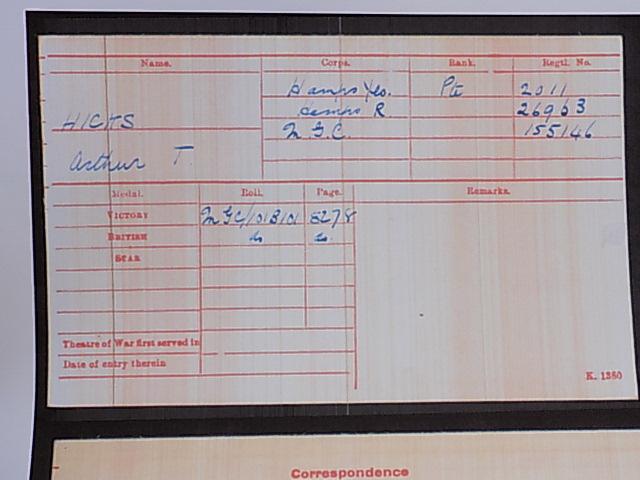 Name. Corps. Rank. Regtl. No.
Hamps Yeo. Pte 2011
Hamps R 26963
HICKS M.G.C. 155146
Arthur T.
Medal. Roll. Page. Remarks.
VICTORY MGC/101B101 8278
BRITISH do do
STAR
Theatre of War first served in
Date of entry therein
K. 1380
Correspondence